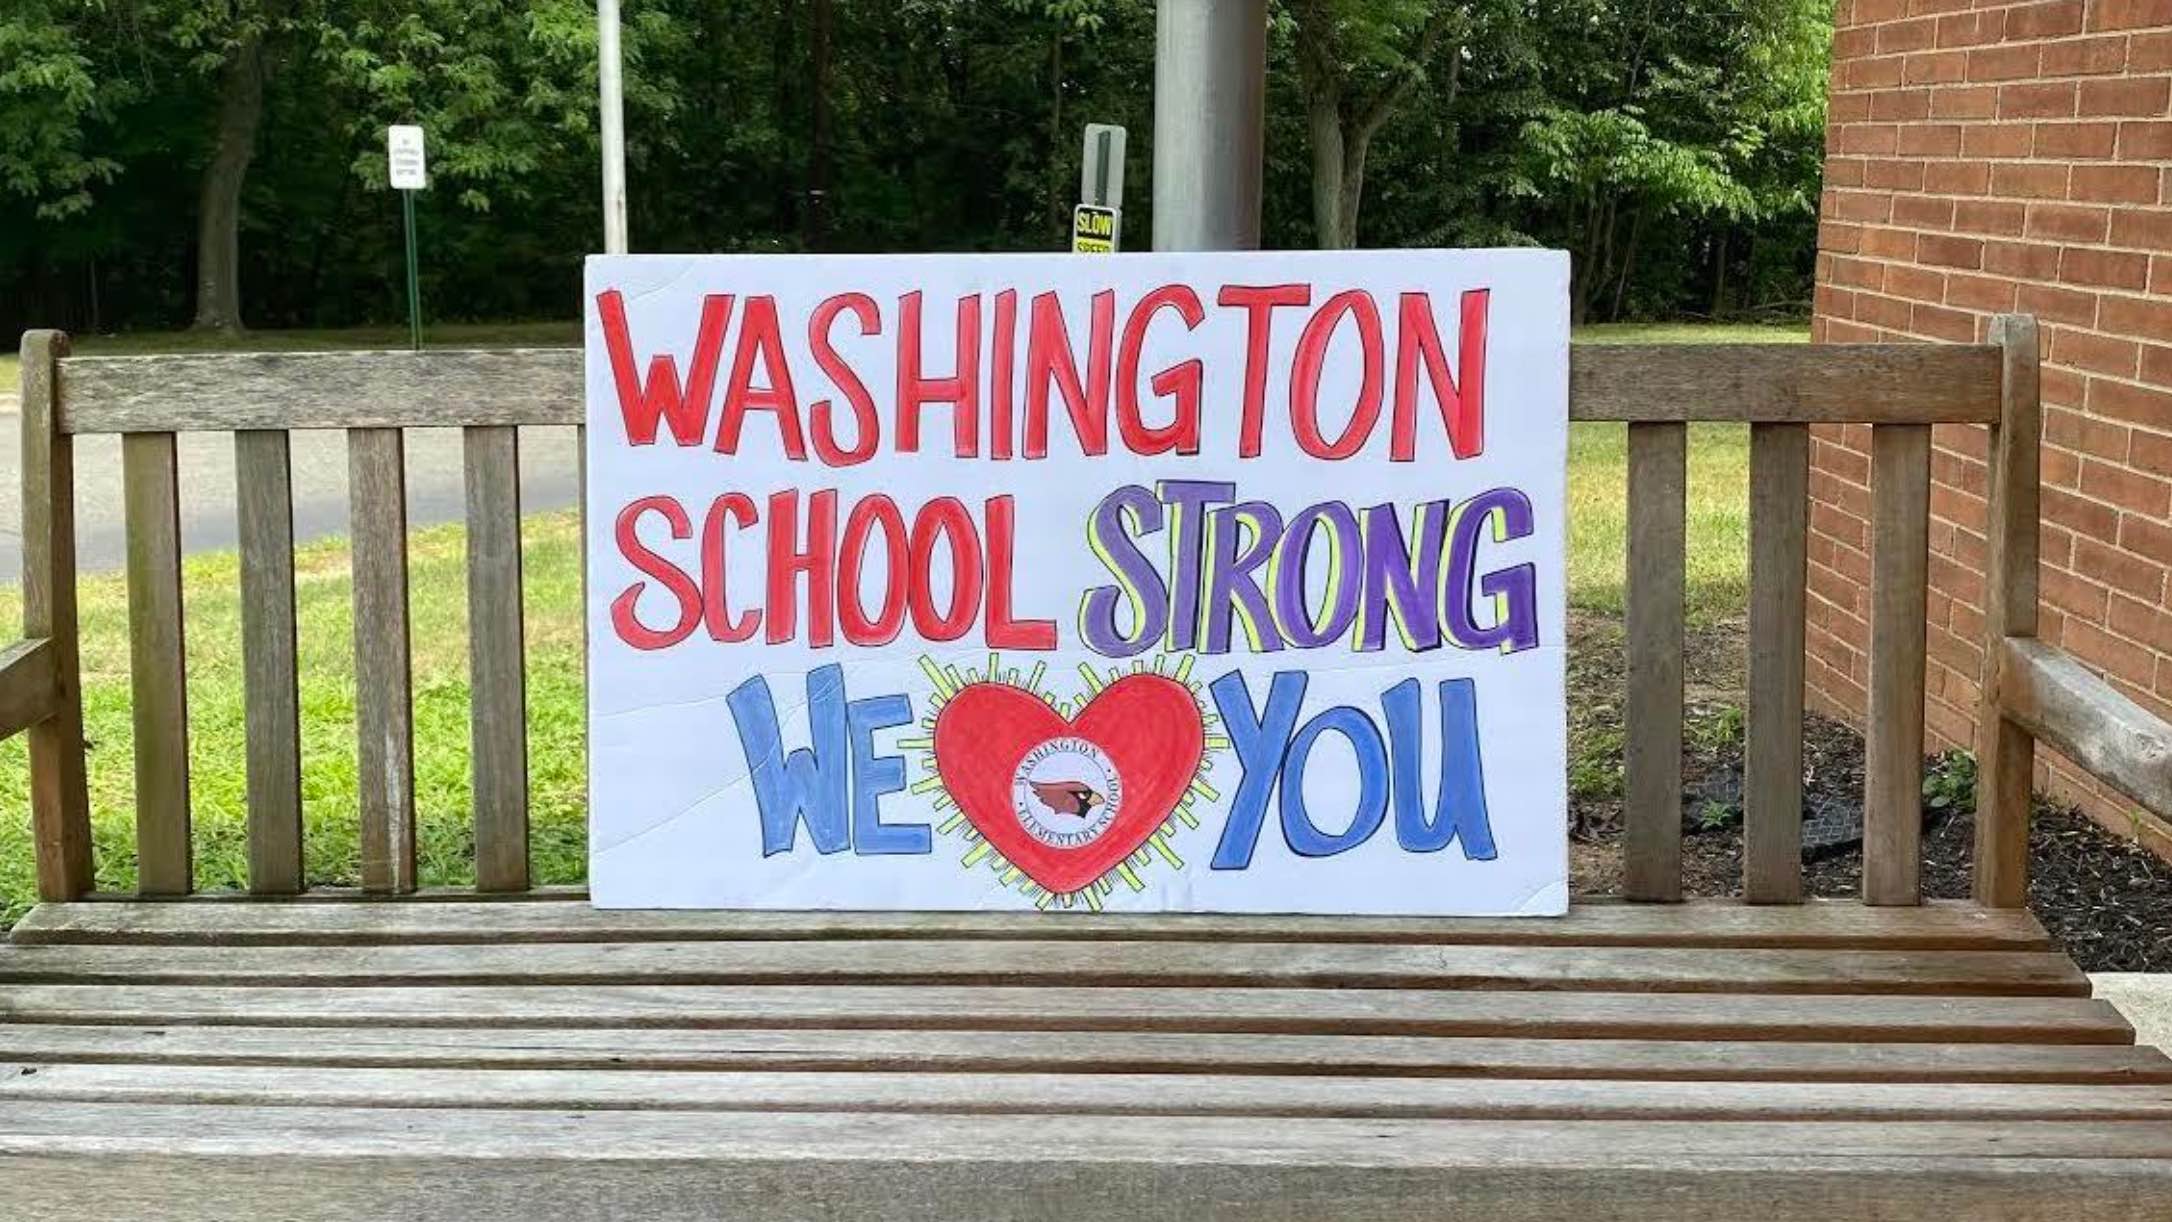 SLOW
SPEED
WASHINGTON
SCHOOL STRONG
WE YOU
WASHINGTON
ELEMENTARY SCHOOL